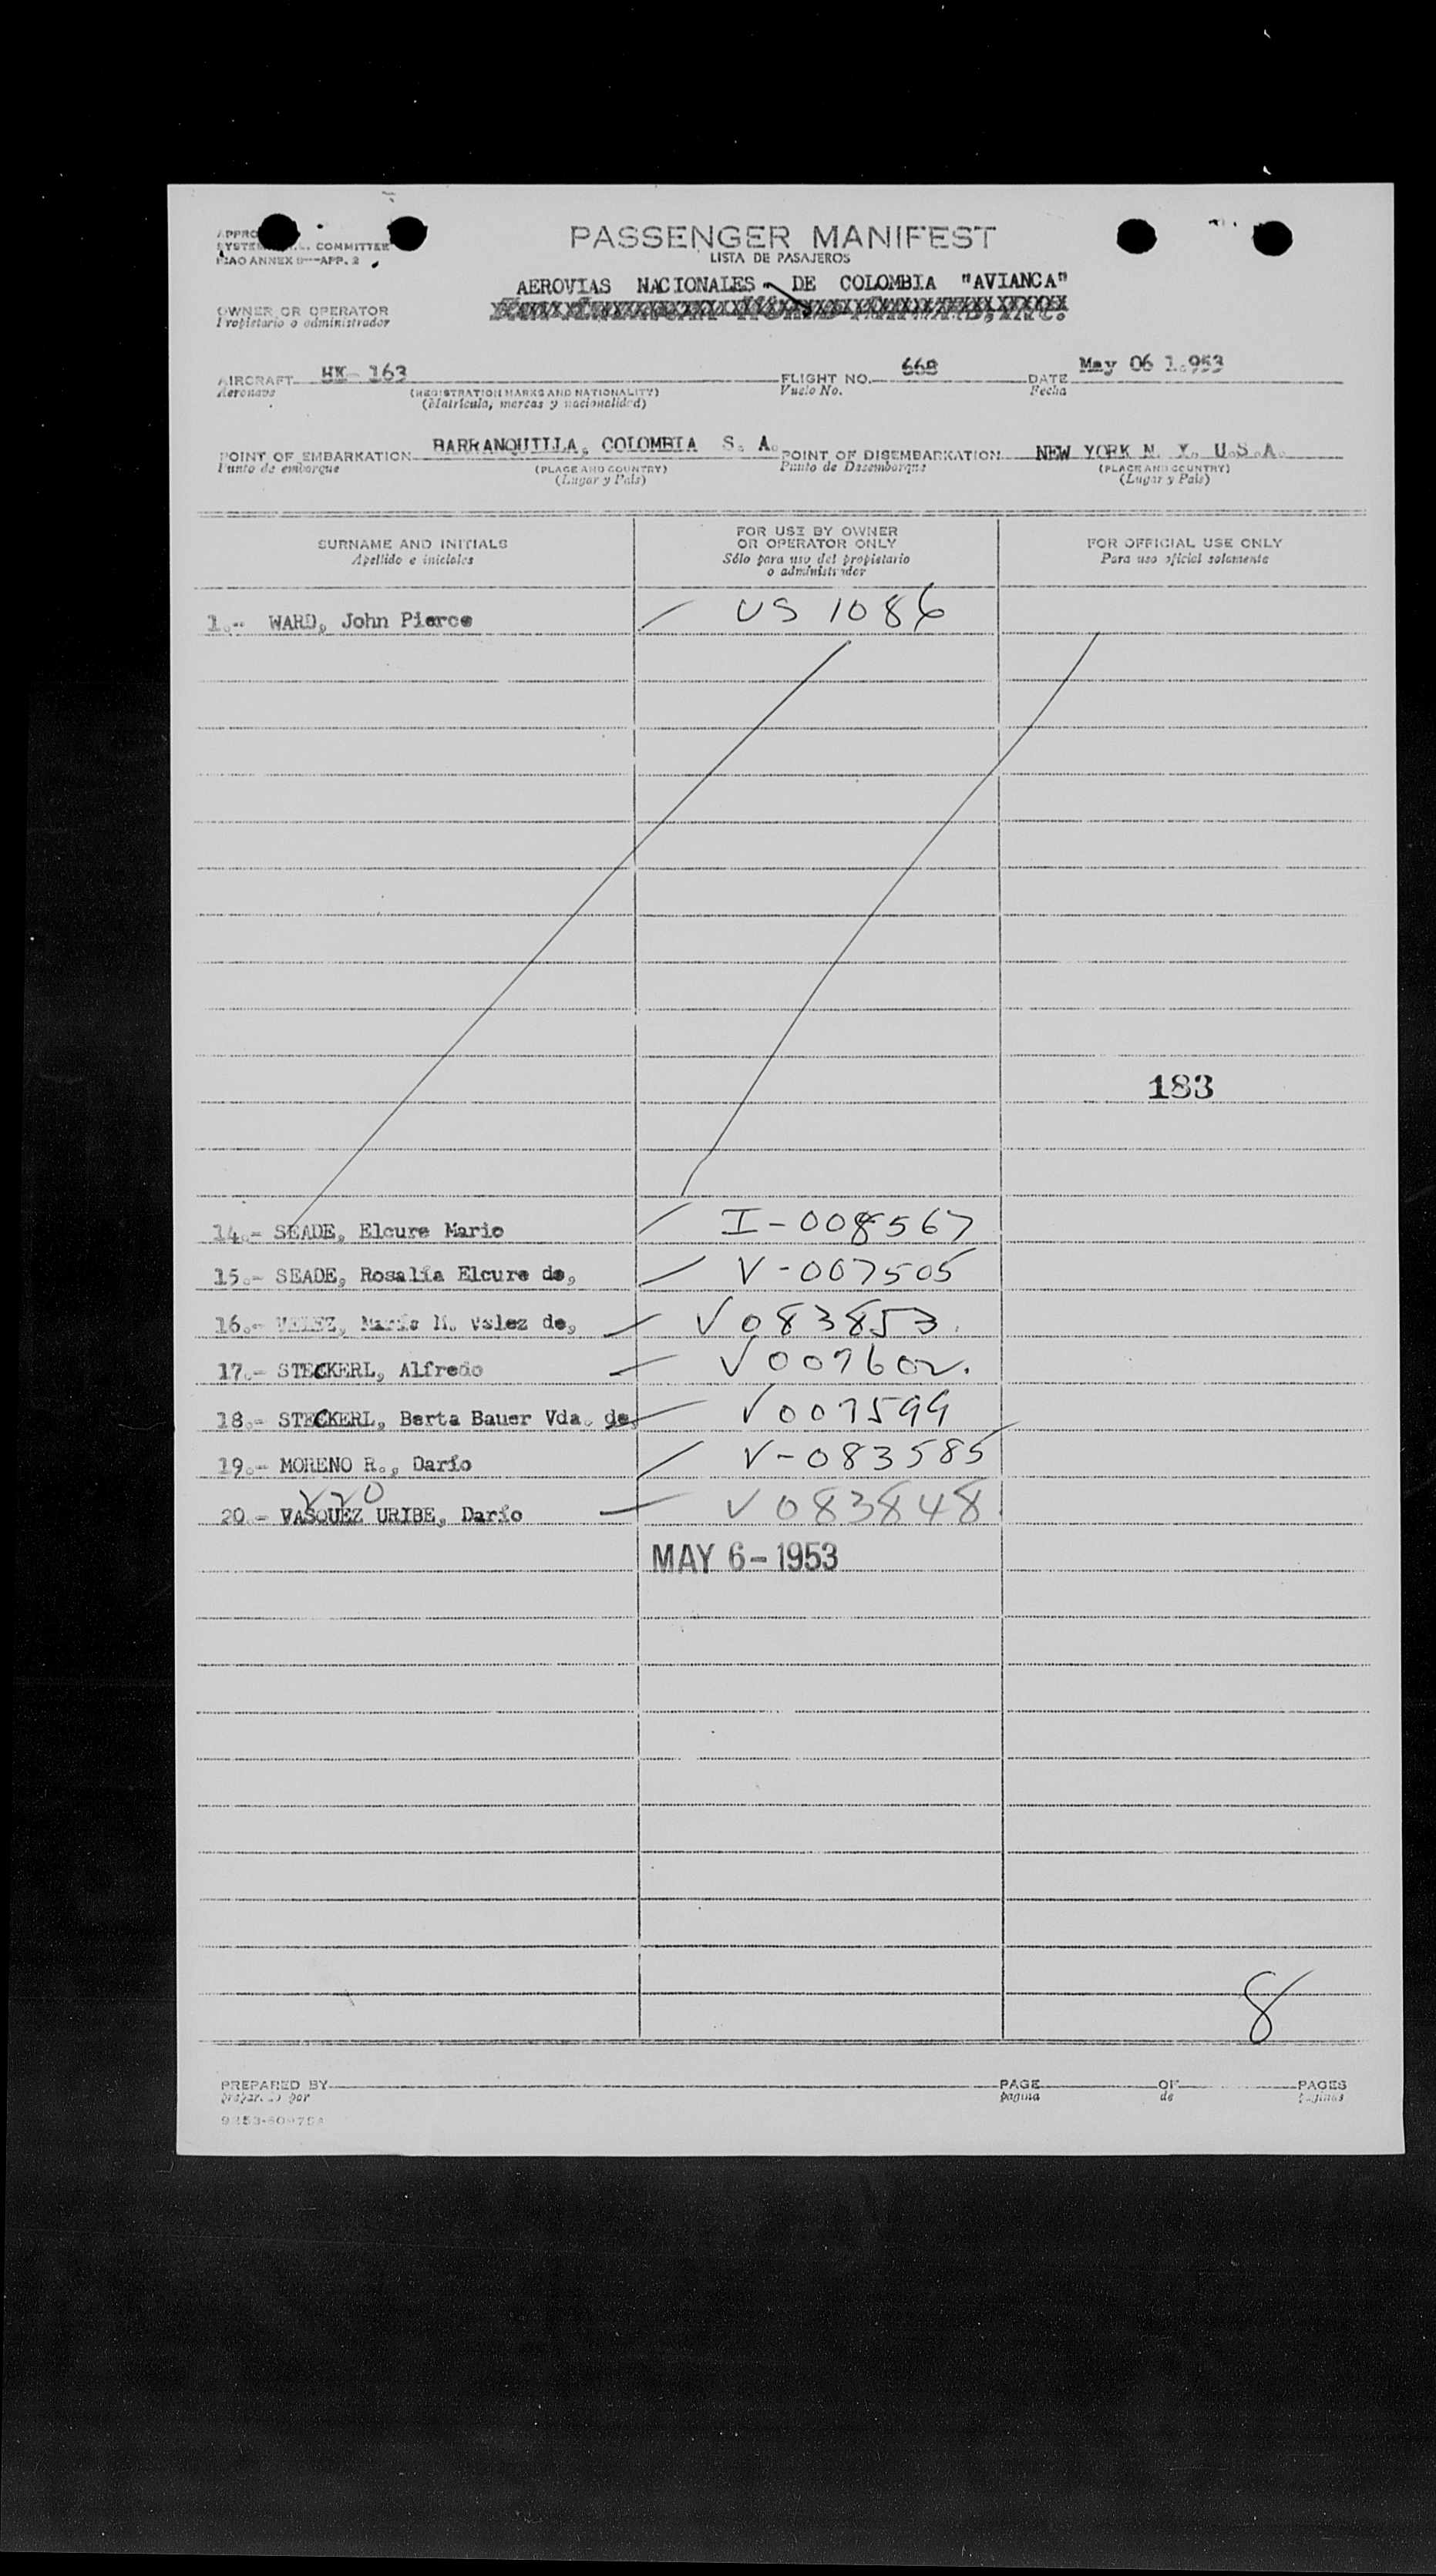 PASSENGER MANIFEST
LISTA DE PASAJEROS
COMMITTEE
ICAO ANNEX 9—APP. 2
AEROVIAS NACIONALES DE COLOMBIA "AVIANCA"
OWNER OR OPERATOR
Propietario o administrador
AIRCRAFT HK- 163 FLIGHT NO. 668 DATE May 06 1.953
Aeronave (REGISTRATION MARKS AND NATIONALITY) Vuelo No. Fecha
(Matrícula, marcas y nacionalidad)
POINT OF EMBARKATION BARRANQUILLA, COLOMBIA S. A. POINT OF DISEMBARKATION NEW YORK N. Y. U.S.A.
Punto de embarque (PLACE AND COUNTRY) Punto de Desembarque (PLACE AND COUNTRY)
(Lugar y País) (Lugar y País)
SURNAME AND INITIALS
Apellido e iniciales
FOR USE BY OWNER
OR OPERATOR ONLY
Sólo para uso del propietario
o administrador
FOR OFFICIAL USE ONLY
Para uso oficial solamente
1.- WARD, John Pierce US 1086
183
14.- SEADE, Elcure Mario I-008567
15.- SEADE, Rosalía Elcure de, V-007505
16.- VELEZ, María M. Velez de, V083853.
17.- STECKERL, Alfredo V007602.
18.- STECKERL, Berta Bauer Vda. de, V007599
19.- MORENO R., Darío V-083585
20.- VASQUEZ URIBE, Darío V083848
MAY 6-1953
8
PREPARED BY PAGE OF PAGES
preparado por pagina de paginas